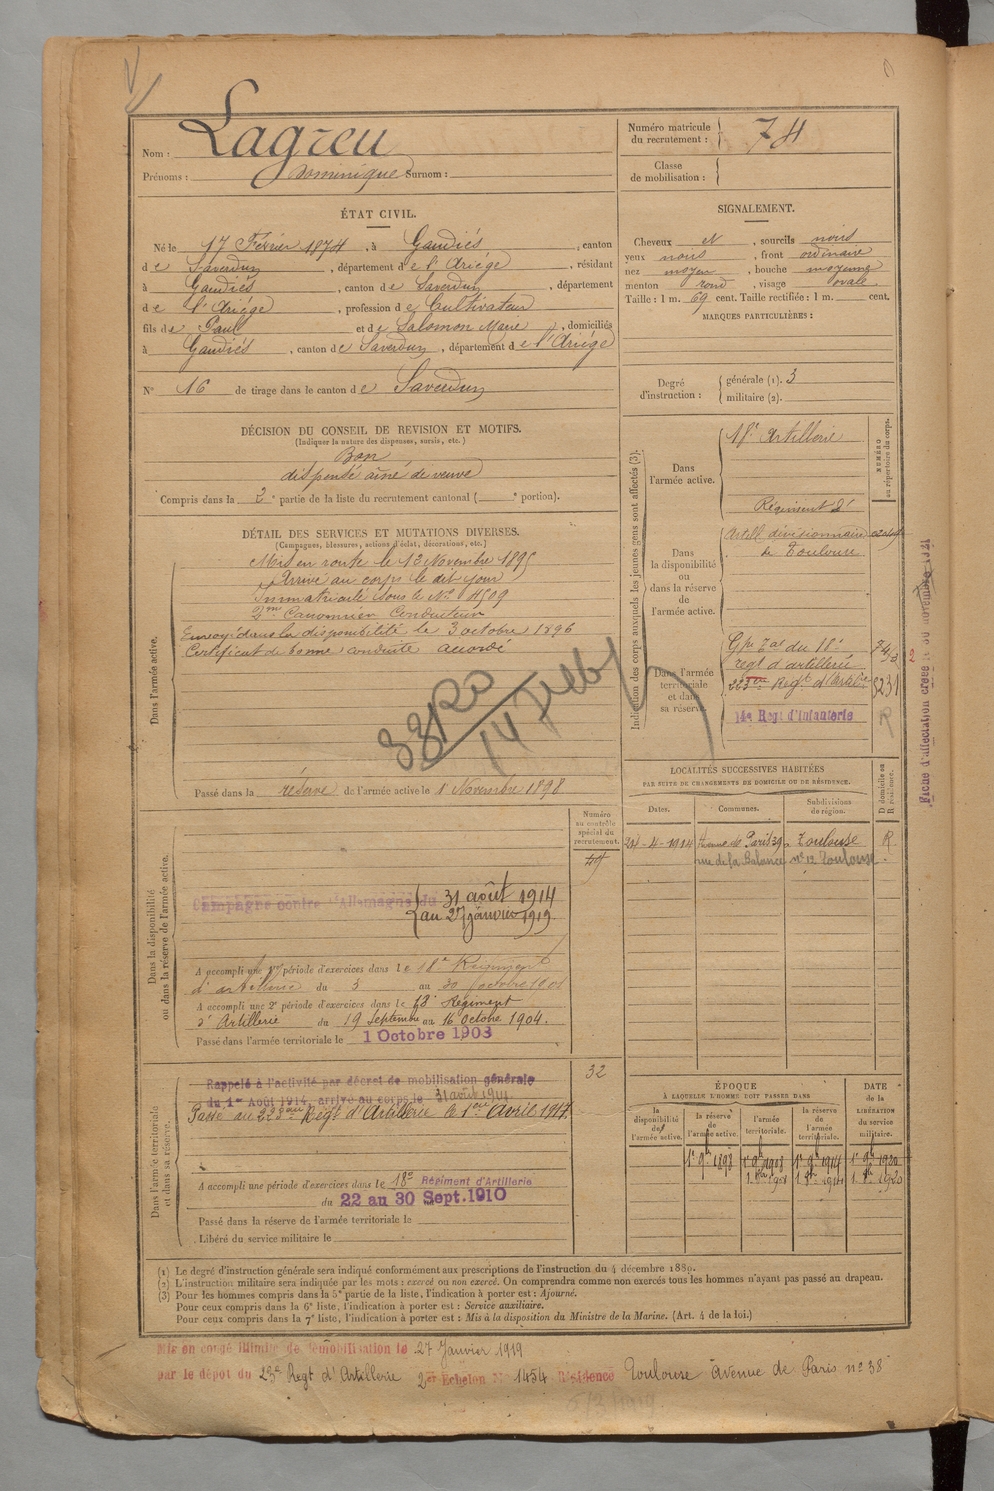 Nom : Lagreu
Prénoms : Dominique Surnom :
Numéro matricule du recrutement : 74
Classe de mobilisation :
ÉTAT CIVIL.
Né le 17 Février 1874, à Gaudiés, canton
de Saverdun, département de l'Ariége, résidant
à Gaudiés, canton de Saverdun, département
de l'Ariége, profession de Cultivateur
fils de Paul et de Salomon Marie, domiciliés
à Gaudiés, canton de Saverdun, département de l'Ariége
N° 16 de tirage dans le canton de Saverdun
SIGNALEMENT.
Cheveux N, sourcils noirs
yeux noirs, front ordinaire
nez moyen, bouche moyenne
menton rond, visage ovale.
Taille : 1 m. 69 cent. Taille rectifiée : 1 m. cent.
MARQUES PARTICULIÈRES :
Degré d'instruction : générale (1). 3
militaire (2).
DÉCISION DU CONSEIL DE REVISION ET MOTIFS.
(Indiquer la nature des dispenses, sursis, etc.)
Bon
dispensé ainé de veuve
Compris dans la 2e partie de la liste du recrutement cantonal ( e portion).
DÉTAIL DES SERVICES ET MUTATIONS DIVERSES.
(Campagnes, blessures, actions d'éclat, décorations, etc.)
Dans l'armée active.
Mis en route le 13 Novembre 1895
Arrivé au corps le dit jour
Immatriculé sous le No 4509
2me Canonnier Conducteur
Envoyé dans la disponibilité le 3 octobre 1896
Certificat de bonne conduite accordé
Passé dans la réserve de l'armée active le 1 Novembre 1898
Indication des corps auxquels les jeunes gens sont affectés (3).
NUMÉRO au répertoire du corps.
Dans l'armée active.
18e Artillerie
Dans la disponibilité ou dans la réserve de l'armée active.
Régiment d'
Artill divisionnaire
de Toulouse
Dans l'armée territoriale et dans sa réserve
Gpe Tal du 18e
regt d'artillerie
223me Regt d'Artil
14e Regt d'Infanterie
R
Fiche d'affectation créée le 30 novembre 1921
LOCALITÉS SUCCESSIVES HABITÉES
PAR SUITE DE CHANGEMENTS DE DOMICILE OU DE RÉSIDENCE.
Dates. Communes. Subdivisions de région. D domicile ou R résidence.
24-4-1914 Avenue de Paris 39 Toulouse R
rue de la Balance no 12 Toulouse
Numéro au contrôle spécial du recrutement.
49
Dans la disponibilité ou dans la réserve de l'armée active.
Campagne contre l'Allemagne du 31 août 1914
au 27 janvier 1919
A accompli une 1re période d'exercices dans le 18e Régiment
d'artillerie du 3 au 30 octobre 1901
A accompli une 2e période d'exercices dans le 18e Régiment
d'Artillerie du 19 Septembre au 16 Octobre 1904.
Passé dans l'armée territoriale le 1 Octobre 1908
Dans l'armée territoriale et dans sa réserve.
32
Rappelé à l'activité par décret de mobilisation générale
du 1er Août 1914, arrivé au corps le 31 août 1914
Passé au 223eme Régt d'Artillerie le 1er Avril 1917
A accompli une période d'exercices dans le 18e Régiment d'Artillerie
du 22 au 30 Sept. 1910
Passé dans la réserve de l'armée territoriale le
Libéré du service militaire le
ÉPOQUE
À LAQUELLE L'HOMME DOIT PASSER DANS
la disponibilité de l'armée active. la réserve de l'armée active. l'armée territoriale. la réserve de l'armée territoriale. DATE de la LIBÉRATION du service militaire.
1e 9b 1898 1e 9b 1908 1e 9b 1914 1e 9b 1920
(1) Le degré d'instruction générale sera indiqué conformément aux prescriptions de l'instruction du 4 décembre 1889.
(2) L'instruction militaire sera indiquée par les mots : exercé ou non exercé. On comprendra comme non exercés tous les hommes n'ayant pas passé au drapeau.
(3) Pour les hommes compris dans la 5e partie de la liste, l'indication à porter est : Ajourné.
Pour ceux compris dans la 6e liste, l'indication à porter est : Service auxiliaire.
Pour ceux compris dans la 7e liste, l'indication à porter est : Mis à la disposition du Ministre de la Marine. (Art. 4 de la loi.)
Mis en congé illimité de démobilisation le 27 Janvier 1919
par le dépôt du 23e Regt d'Artillerie 2er Echelon No 1454 Résidence Toulouse Avenue de Paris no 38